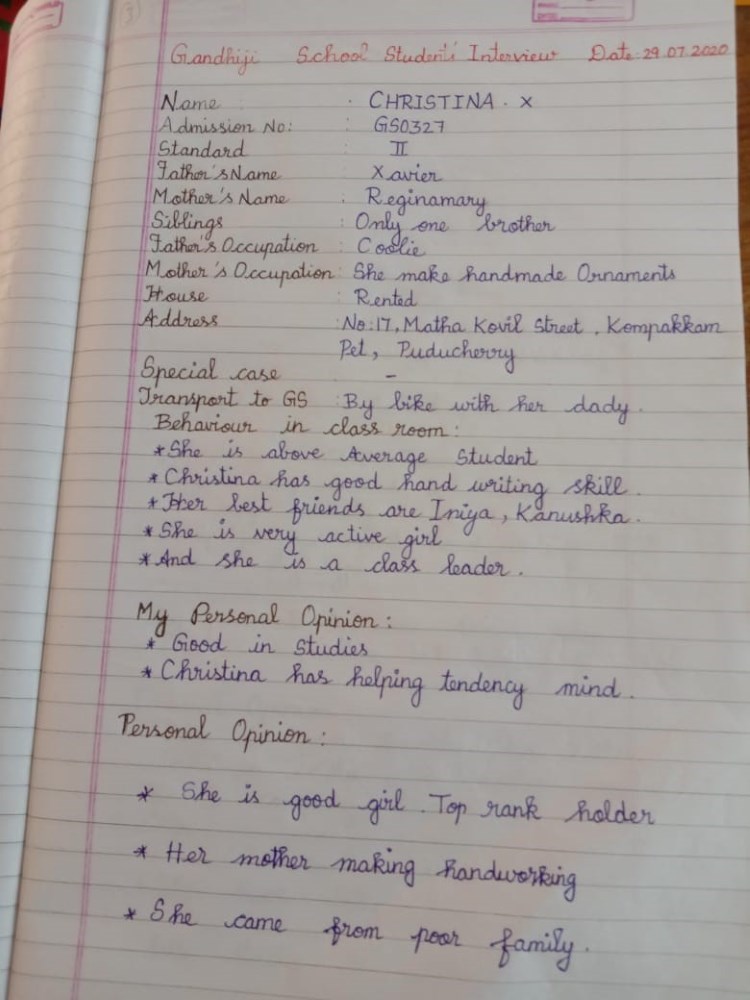 Gandhiji School Student's Interview Date 29.07.2020
Name : CHRISTINA . X
Admission No: : GS0327
Standard : II
Father's Name : Xavier
Mother's Name : Reginamary
Siblings : Only one brother
Father's Occupation : Coolie
Mother's Occupation : She make handmade Ornaments
House : Rented
Address : No:17, Matha Kovil Street, Kompakkam
Pet, Puducherry
Special case -
Transport to GS : By bike with her dady.
Behaviour in class room :
* She is above Average Student
* Christina has good hand writing skill.
* Her best friends are Iniya, Kanushka.
* She is very active girl
* And she is a class leader.
My Personal Opinion :
* Good in Studies
* Christina has helping tendency mind.
Personal Opinion :
* She is good girl. Top rank holder
* Her mother making handworking
* She came from poor family.